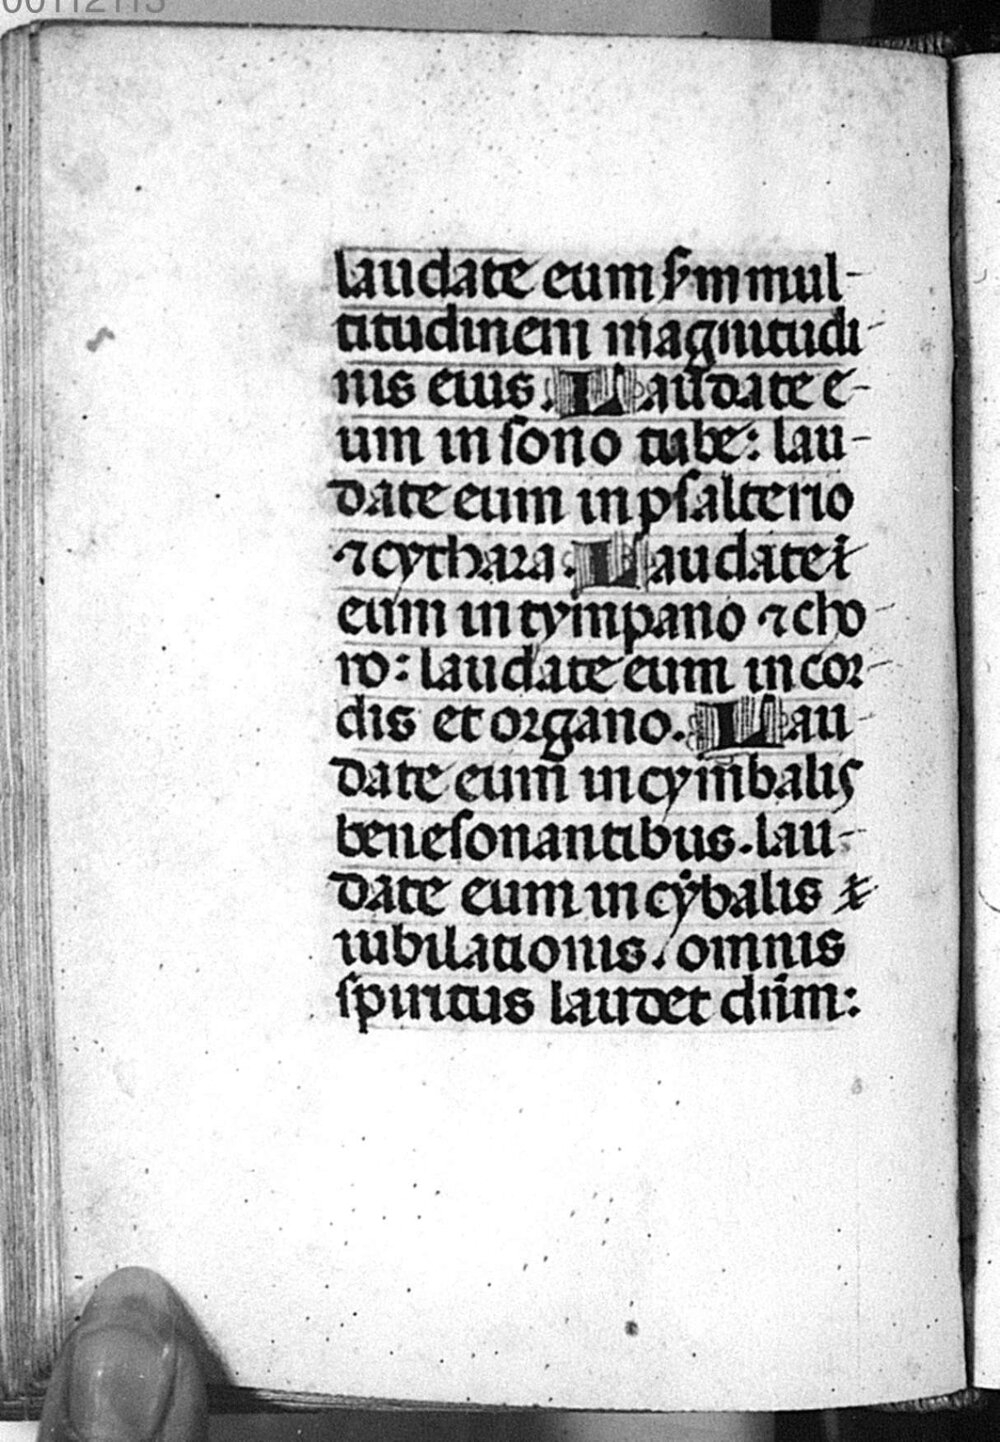 00112113
laudate eum s'm mul-
titudinem magnitudi-
nis eius. Laudate e-
um in sono tube: lau-
date eum in psalterio
⁊ cythara. Laudate
eum in tympano ⁊ cho-
ro: laudate eum in cor-
dis et organo. Lau-
date eum in cymbalis
benesonantibus. lau-
date eum in cȳbalis
iubilationis. omnis
spiritus laudet dñm: